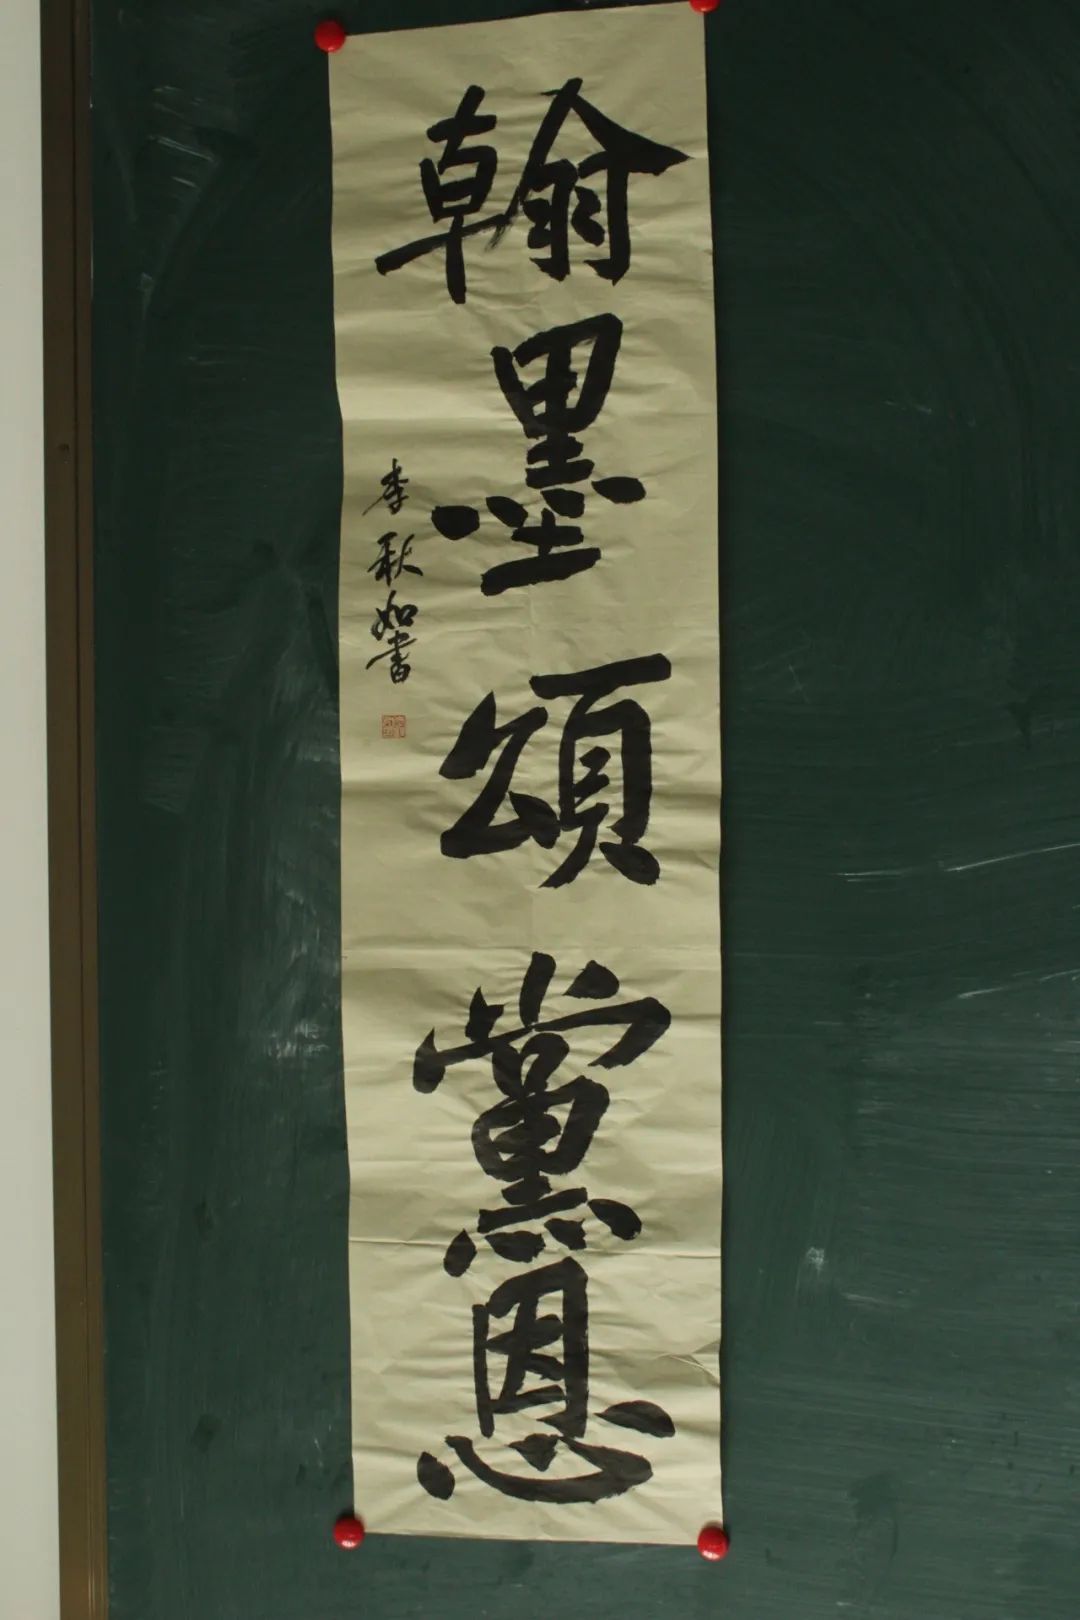 翰墨頌黨恩
李秋如書